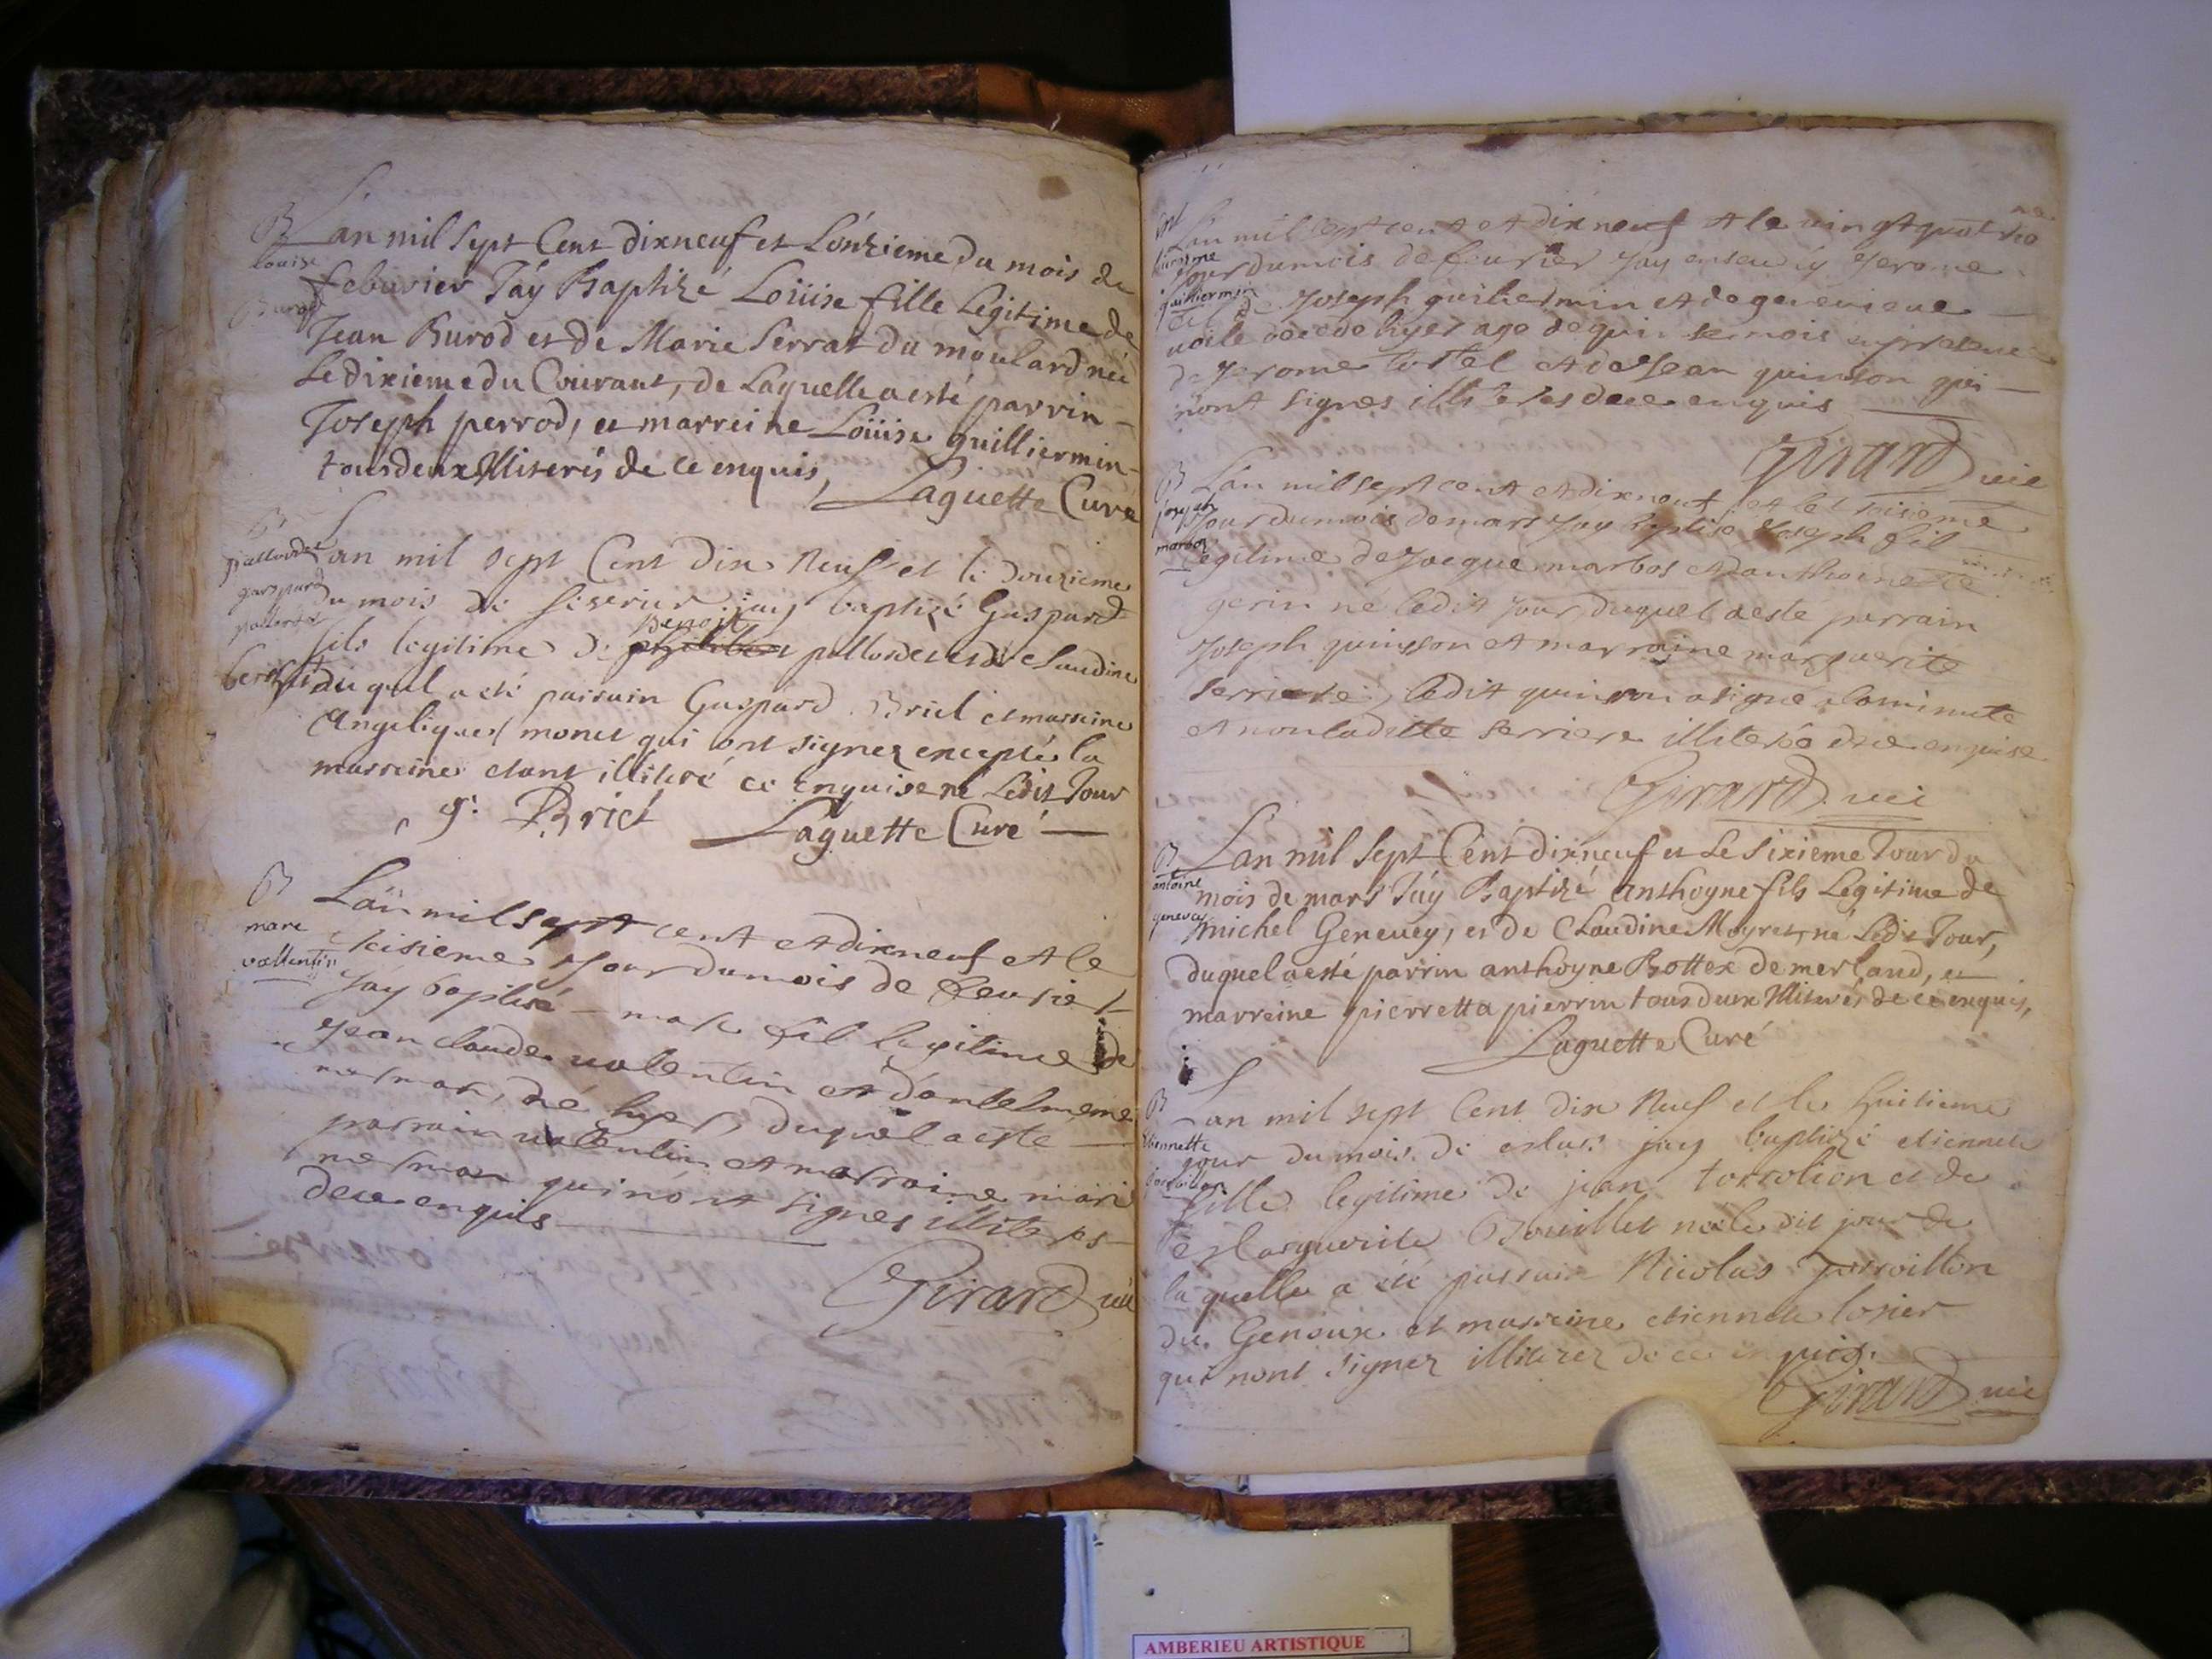 B
Louise
Burod
Lan mil Sept Cent dixneuf et Lónzieme du mois de
Feburier Jáy Baptizé Loüise fille Legitime de
Jean Burod et de Marie Serrat du moulard née
Le dixieme du Courant, de Laquelle a esté parrin
Joseph perrod, et marreine Loüise guilliermin
tous deux Illiterés de ce enquis,
Laguette Curé
B
gaspard
Lan mil sept Cent dix Neuf et le Douzieme
du mois de fevrier jay baptizé Gaspard
Benoit
fils legitime de pallordet et de Claudine
duquel a eté pairain Gaspard Briel et marreine
Angelique monet qui ont signez excepté la
marreine etant illiteré ce enquise né Ledit Jour
g. Briel Laguette Curé
B
marc
vallentin
Lan mil sept cent et dixneuf et le
seisieme Jour du mois de feurier
Jáy baptisé marc fil legitime de
Jean claude valentin et dantelmene
mermor, né hyer, duquel a este
parrain valentin et marraine marie
mermor qui nont signes illiteres
de ce enquis
Girard vic
jerosme
guilliermin
Lan mil sept cent et dixneuf et le vingt quatre
Jour du mois de feurier Jay enseuely Jerome
fil de Joseph guilliermin et de genevieve
decede hyer age de quinse mois en presence
de Jerome tortel et de Jean quinson qui
nont signes illiteres de ce enquis
Girard vic
B
joseph
marbos
Lan mil sept cent et dixneuf et le troisieme
Jour du mois de mars Jay baptise Joseph fil
legitime de Jacque marbos et danthoinette
gerin né ledit Jour, duquel a este parrain
Joseph quinson et marraine marguerite
serriere, ledit quinson a signé a la minute
et non laditte serriere illiterée de ce enquise
Girard vic
B
antoine
genevey
Lan mil Sept Cent dixneuf et Le Sixieme Jour du
mois de mars Jáy Baptizé anthoyne fils Legitime de
michel Genevey, et de Claudine Moyret, né Ledit Jour,
duquel a esté parrin anthoyne Bottex de merland, et
marreine pierretta pierrin tous deux Illiterés de ce enquis,
Laguette Curé
B
Etiennette
Lan mil sept Cent dix Neuf et le huitieme
jour du mois de Mars jay baptizé etiennete
fille legitime de jean torrolion et de
Marguerite Bouillet née le dit jour de
la quelle a été parrain Nicolas porroillon
du Genoux et marreine etiennete losier
qui nont signez illiterez de ce enquis.
Girard vic
AMBERIEU ARTISTIQUE